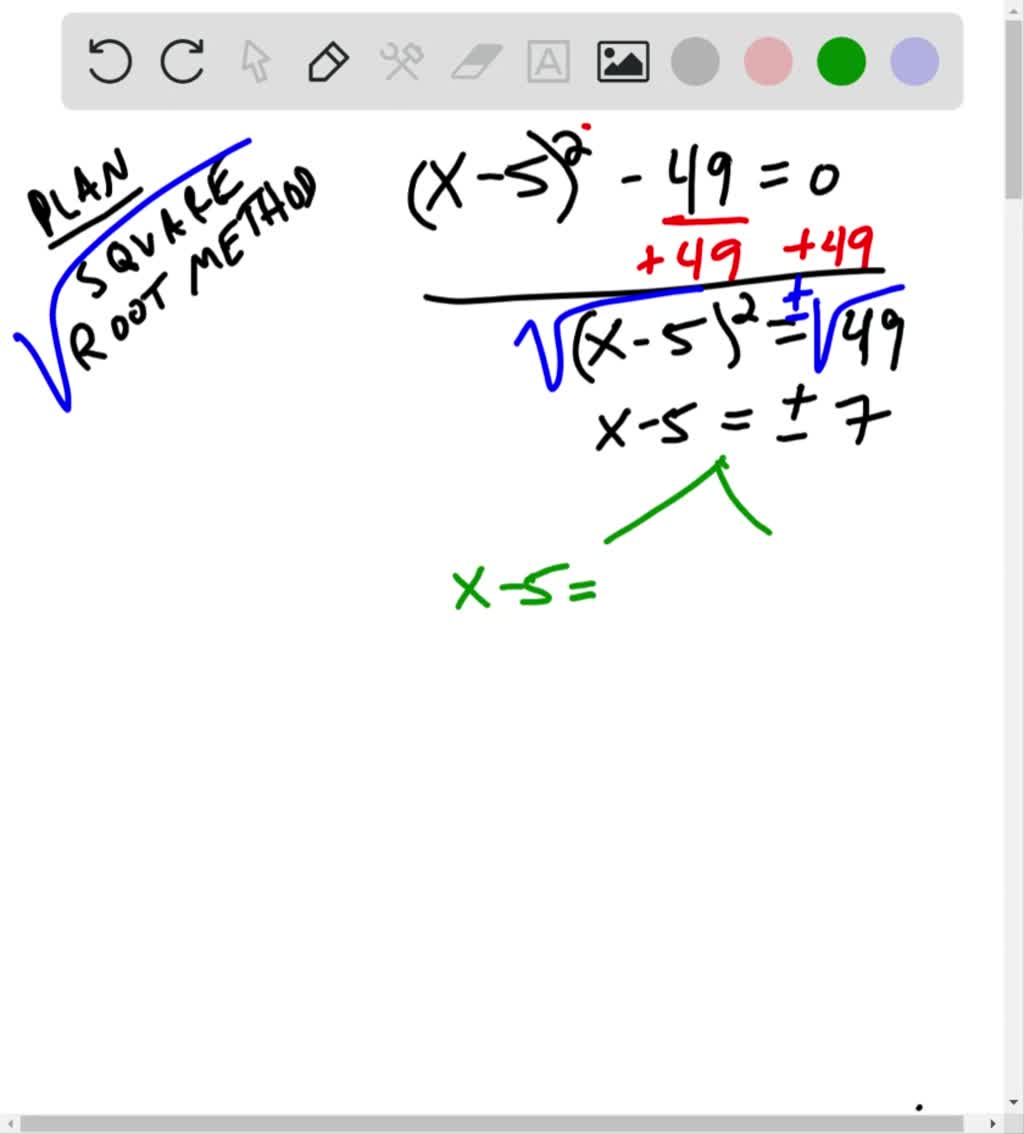 PLAN
SQUARE
ROOT METHOD
(x-5)² - 49 = 0
+49 +49
√(x-5)² = ±√49
x-5 = ± 7
x-5=